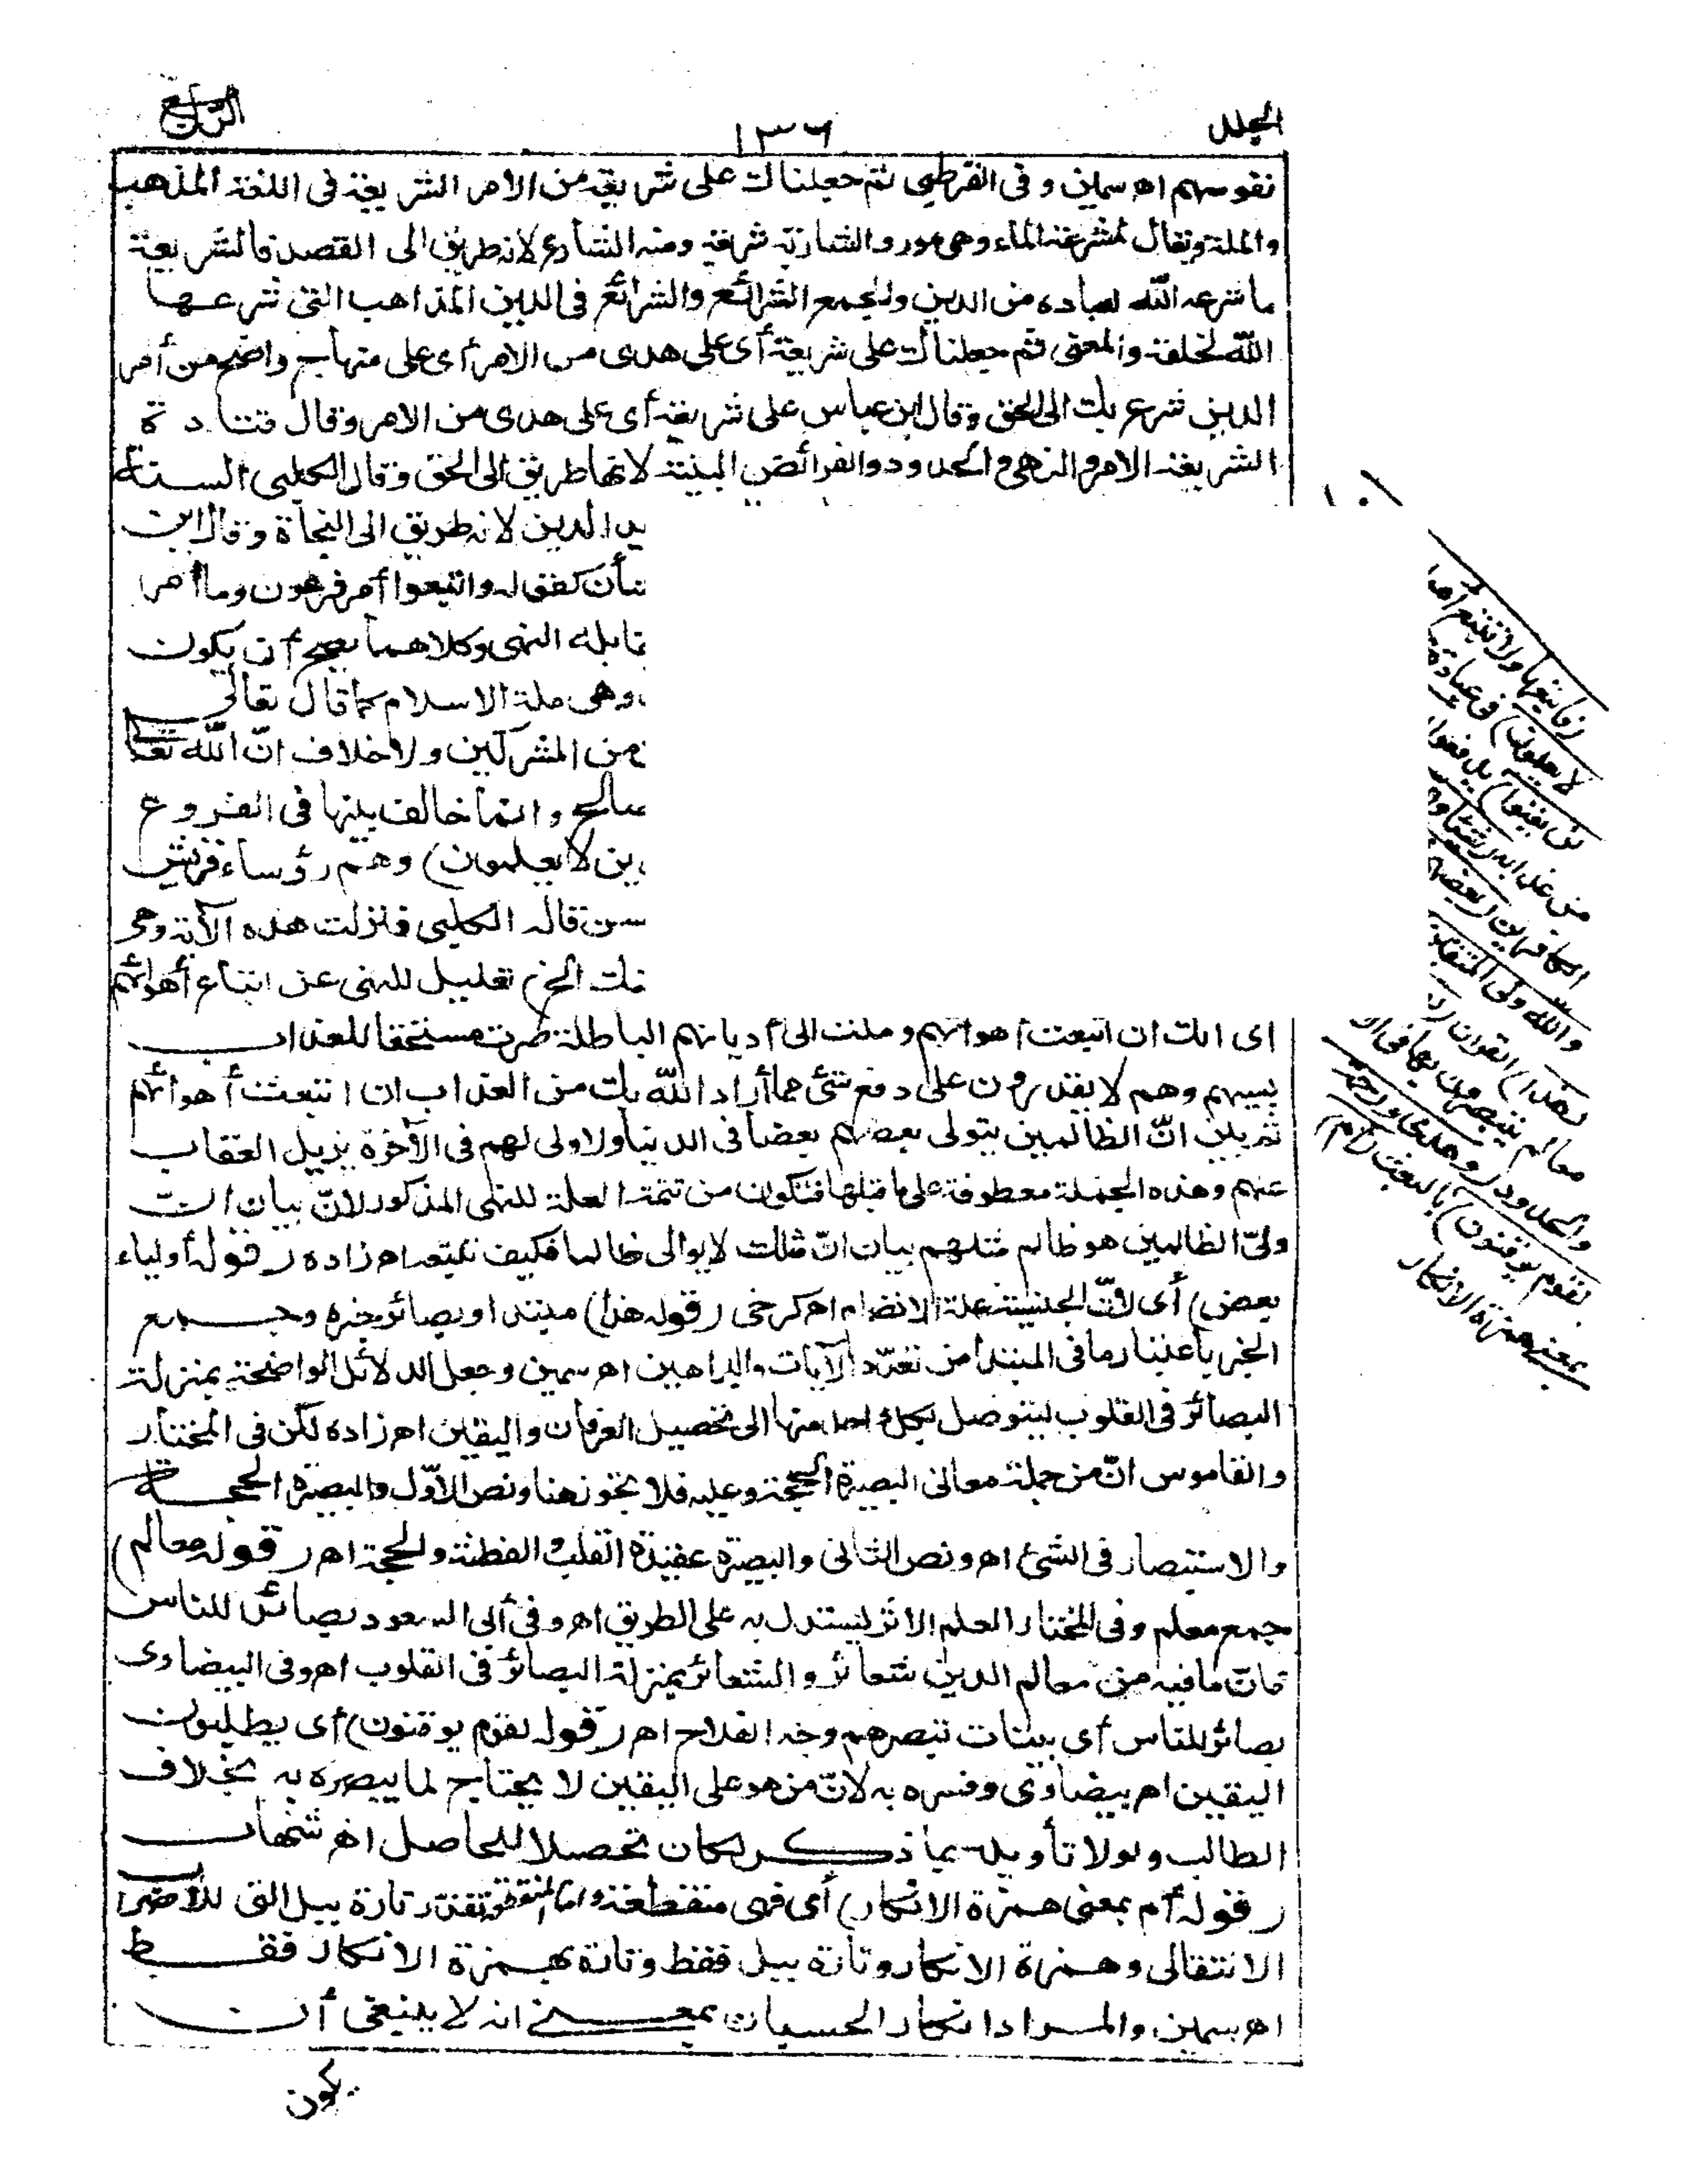 الجلد
١٣٦
الرابع
نفوسهم اه سمين وفى القرطبى ثم جعلناك على شريعة من الامر الشريعة فى اللغة المذهب
والملة ويقال لمشرعة الماء وهى مورد الشاربة شريعة ومنه الشارع لانه طريق الى القصد فالشريعة
ما شرعه الله لعباده من الدين والجمع الشرائع والشرائع فى الدين المذاهب التى شرعها
الله لخلقه والمعنى ثم جعلناك على شريعة أى على هدى من الامر أى على منهاج واضح من أمر
الدين شرع بك الى الحق وقال ابن عباس على شريعة أى على هدى من الامر وقال قتادة
الشريعة الامر والنهى والحدود والفرائض البينة لانها طريق الى الحق وقال الكلبى السنة
الدين لانه طريق الى النجاة وقال ابن
شأن كقوله واتبعوا أمر فرعون وما أمر
قابله النهى وكلاهما يصح أن يكون
وهى ملة الاسلام كما قال تعالى
من المشركين ولا خلاف انّ الله تعالى
صالح وانما خالف بينها فى الفروع
ين لا يعلمون) وهم رؤساء قريش
قاله الكلبى فنزلت هذه الآية
الخ) تعليل للنهى عن اتباع أهوائهم
اى انك ان اتبعت أهوائهم وملت الى أديانهم الباطلة صرت مستحقا للعذاب
بسببهم وهم لا يقدرون على دفع شئ مما أراد الله بك من العذاب ان اتبعت أهوائهم
ثم بين انّ الظالمين يتولى بعضهم بعضا فى الدنيا ولا ولى لهم فى الآخرة يزيل العقاب
عنهم وهذه الجملة معطوفة على ما قبلها فتكون من تتمة العلة للنهى المذكور لانّ بيان ان
ولىّ الظالمين هو ظالم مثلهم بيان انّ مثلك لا يوالى ظالما فكيف تتبعه اه زاده (قوله أولياء
بعض) أى لانّ الجنسية علة الانضمام اه كرخى (قوله هذا) مبتدا وبصائر خبره وجمع
الخبر باعتبار ما فى المبتدأ من تعدّد الآيات والبراهين اه سمين وجعل الدلائل الواضحة بمنزلة
البصائر فى القلوب ليتوصل بكل احد منها الى تحصيل العرفان واليقين اه زاده لكن فى المختار
والقاموس انّ من جملة معانى البصيرة الحجة وعليه فلا تجوز هنا ونص الاوّل والبصيرة الحجة
والاستبصار فى الشئ اه ونص الثانى والبصيرة عقيدة القلب والفطنة والحجة اه (قوله معالم)
جمع معلم وفى المختار المعلم الاثر يستدل به على الطريق اه وفى أبى السعود بصائر للناس
فانّ ما فيه من معالم الدين شعائر والشعائر بمنزلة البصائر فى القلوب اه وفى البيضاوى
بصائر للناس أى بينات تبصرهم وجه الفلاح اه (قوله لقوم يوقنون) أى يطلبون
اليقين اه بيضاوى وفسره به لانّ من هو على اليقين لا يحتاج لما يبصره به بخلاف
الطالب ولولا تأويله بما ذكر لكان تحصيلا للحاصل اه شهاب
(قوله أم بمعنى همزة الانكار) أى فهى منقطعة والمنقطعة تقدر تارة ببل التى للاضراب
الانتقالى وهمزة الانكار وتارة ببل فقط وتارة بهمزة الانكار فقط
اه سمين والمراد انكار الحسبان بمعنى انه لا ينبغى أن
يكون
(فاتبعها ولا تتبع أهوا
لا يعلمون) فى عبادة
لن يغنوا) يدفعوا
من عذابه (شيئا و
الكافرين (بعضهم
والله ولى المتقين
(هذا) القرآن
معالم يتبصرون بها فى ال
والحدود (وهدى ورحمة
لقوم يوقنون) بالبعث (أم)
بمعنى همزة الانكار